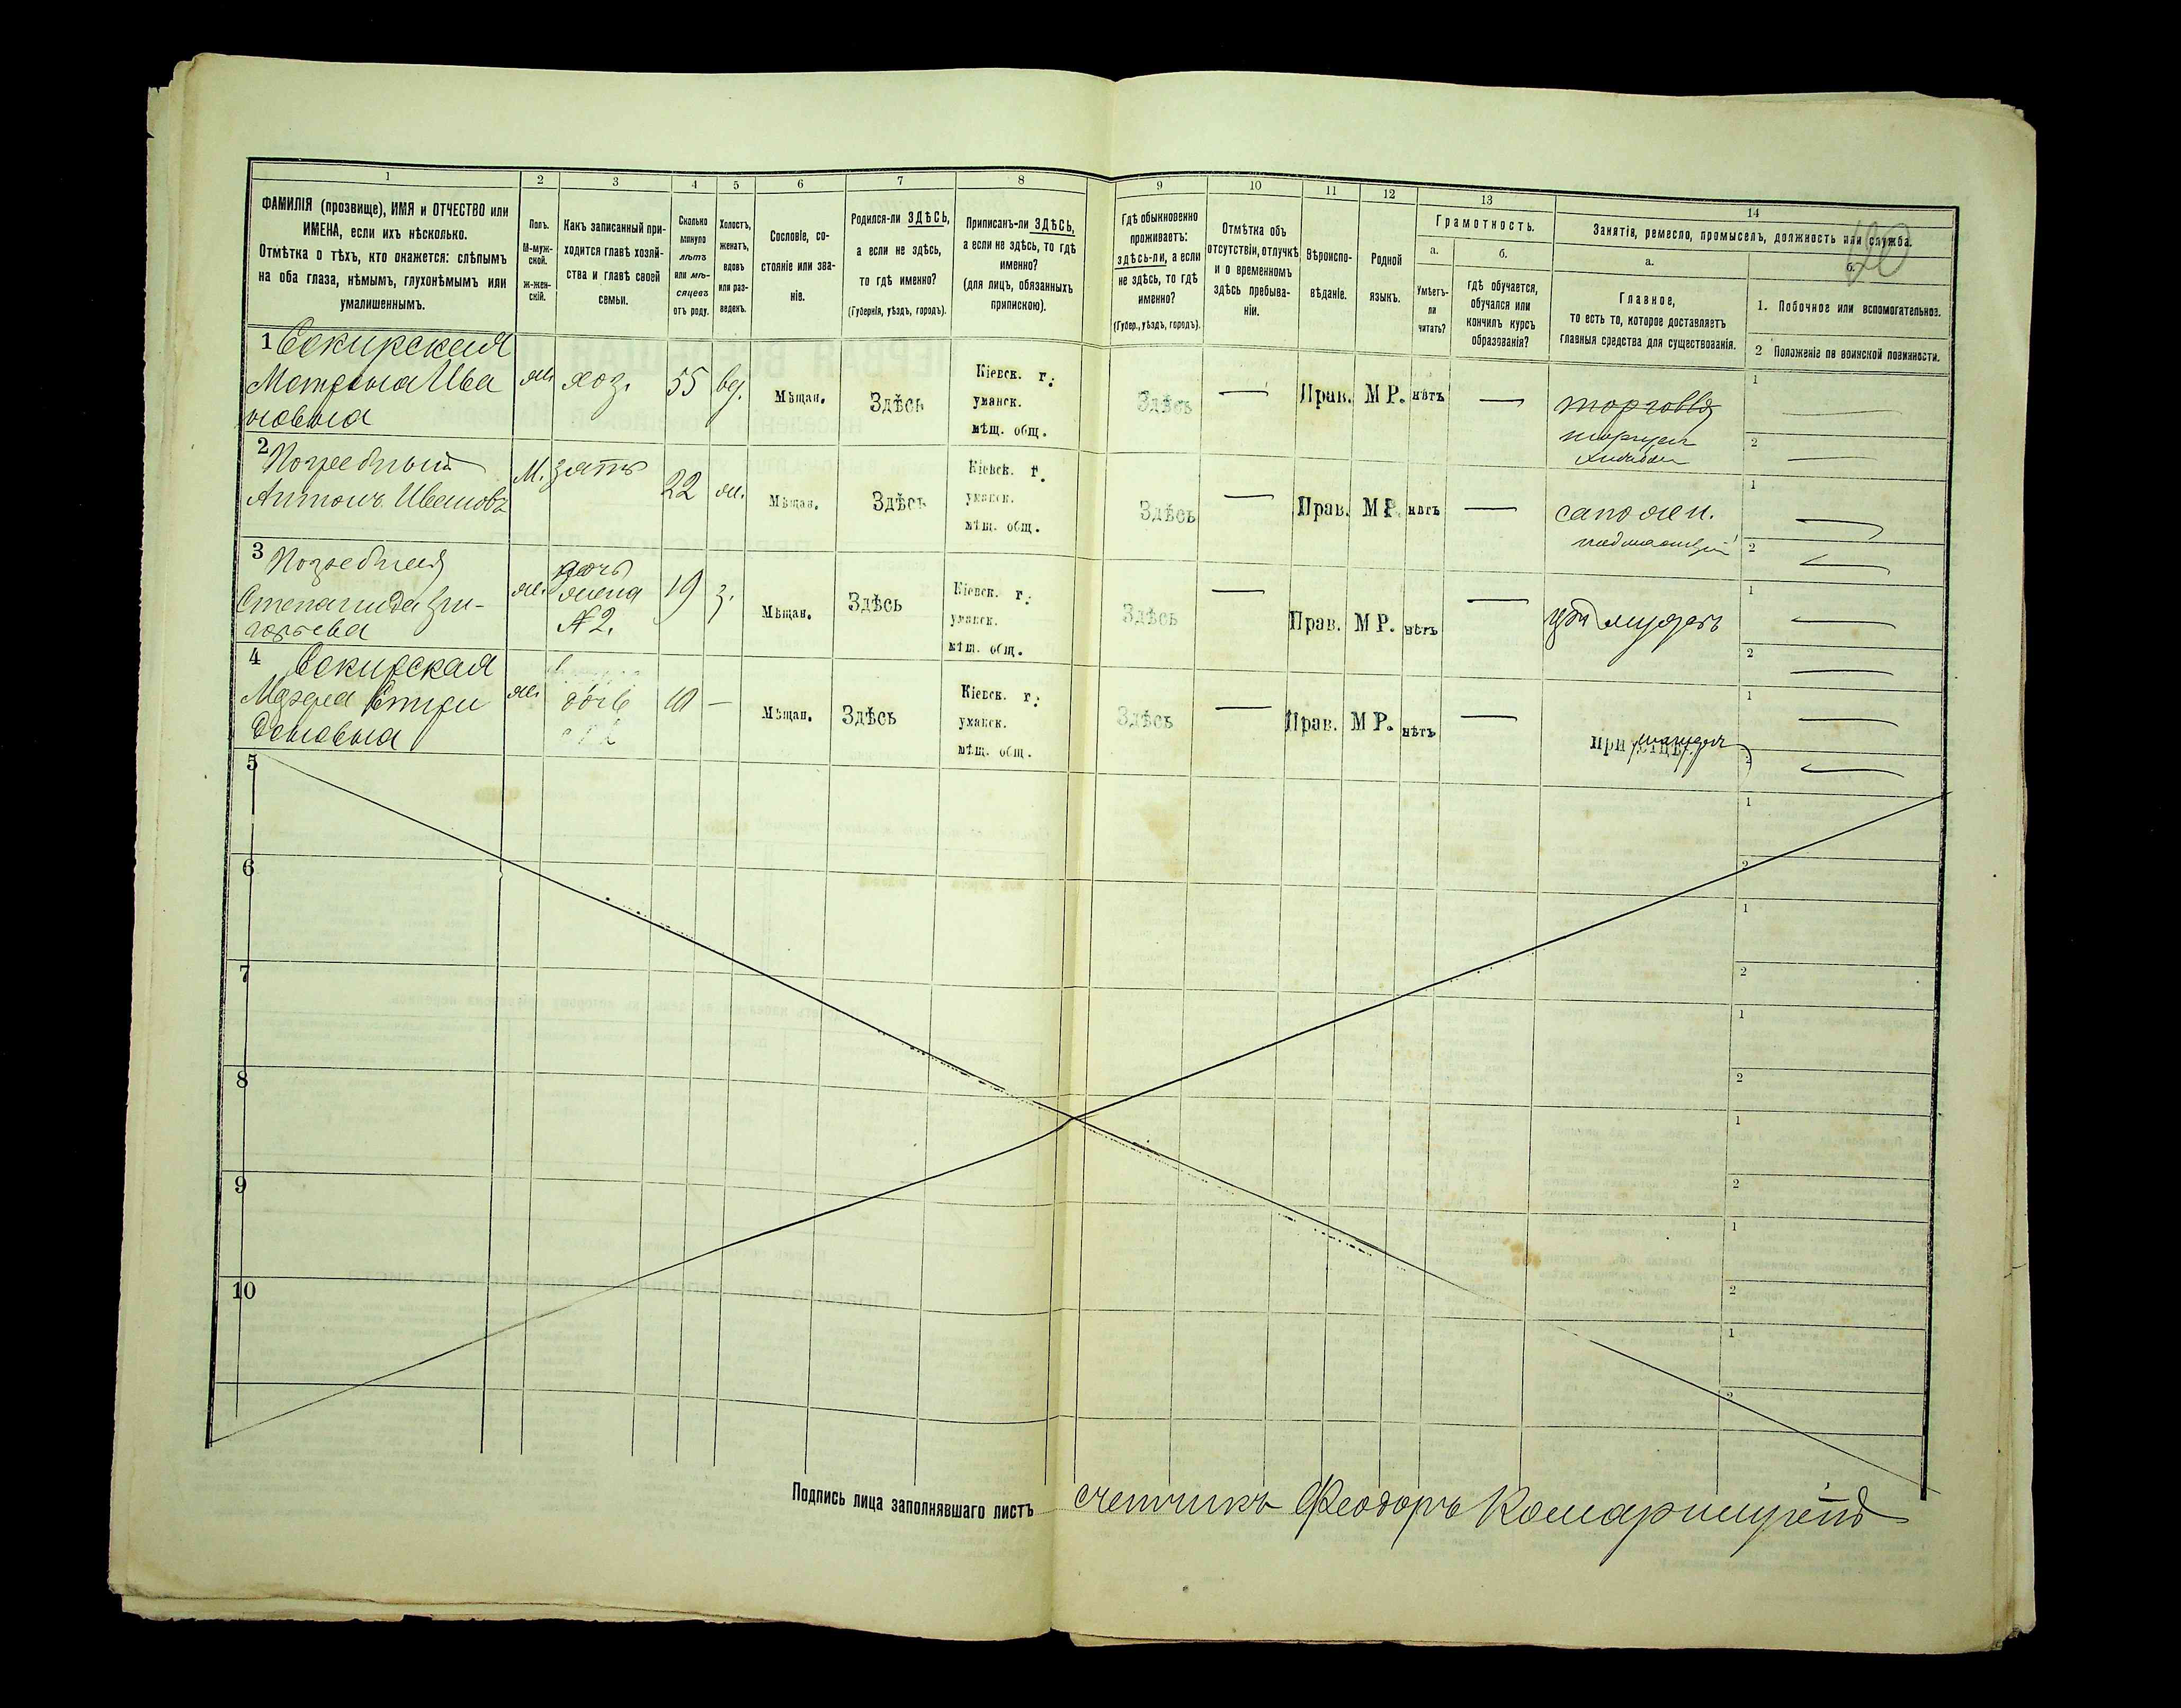 1 2 3 4 5 6 7 8 9 10 11 12 13 14
ФАМИЛІЯ (прозвище), ИМЯ и ОТЧЕСТВО или
ИМЕНА, если ихъ нѣсколько.
Отмѣтка о тѣхъ, кто окажется: слѣпымъ
на оба глаза, нѣмымъ, глухонѣмымъ или
умалишеннымъ.
Полъ.
М-муж-
ской.
ж-жен-
скій.
Какъ записанный при-
ходится главѣ хозяй-
ства и главѣ своей
семьи.
Сколько
минуло
лѣтъ
или мѣ-
сяцевъ
отъ роду.
Холостъ,
женатъ,
вдовъ
или раз-
веденъ.
Сословіе, со-
стояніе или зва-
ніе.
Родился-ли ЗДѢСЬ,
а если не здѣсь,
то гдѣ именно?
(Губернія, уѣздъ, городъ).
Приписанъ-ли ЗДѢСЬ,
а если не здѣсь, то гдѣ
именно?
(для лицъ, обязанныхъ
припискою).
Гдѣ обыкновенно
проживаетъ:
здѣсь-ли, а если
не здѣсь, то гдѣ
именно?
(Губер., уѣздъ, городъ).
Отмѣтка объ
отсутствіи, отлучкѣ
и о временномъ
здѣсь пребыва-
ніи.
Вѣроиспо-
вѣданіе.
Родной
языкъ.
Грамотность.
а.
Умѣетъ-
ли
читать?
б.
гдѣ обучается,
обучался или
кончилъ курсъ
образованія?
Занятія, ремесло, промыселъ, должность или служба.
а.
Главное,
то есть то, которое доставляетъ
главныя средства для существованія.
б.
1. Побочное или вспомогательное.
2 Положеніе по воинской повинности.
1 Секирская
Матрена Ива
новна
ж. хоз. 55 вд. Мѣщан. Здѣсь
Кіевск. г.
уманск.
мѣщ. общ.
Здѣсь — Прав. М Р. нѣтъ —
торговля
1 —
2 —
2 Погребный
Антонъ Ивановъ
М. зять 22 ж. Мѣщан. Здѣсь
Кіевск. г.
уманск.
мѣщ. общ.
Здѣсь — Прав. М Р. нѣтъ —
сапожн.
1 —
2 —
3 Погребная
Степанида Гри-
горьева
ж.
дочь
жена
№2.
19 з. Мѣщан. Здѣсь
Кіевск. г.
уманск.
мѣщ. общ.
Здѣсь — Прав. М Р. нѣтъ —
при мужѣ
1 —
2 —
4 Секирская
Спири
доновна
ж. дочь 10 — Мѣщан. Здѣсь
Кіевск. г.
уманск.
мѣщ. общ.
Здѣсь — Прав. М Р. нѣтъ —
при отцѣ
1 —
2 —
5
1
2
6
1
2
7
1
2
8
1
2
9
1
2
10
1
2
Подпись лица заполнявшаго листъ счетчикъ Феодоръ